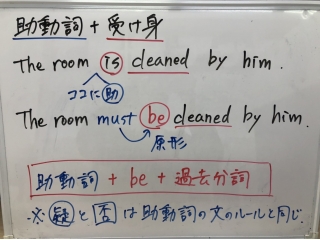 助動詞 + 受け身
The room is cleaned by him.
ココに助
The room must be cleaned by him.
原形
助動詞 + be + 過去分詞
※ 疑と否は助動詞の文のルールと同じ.